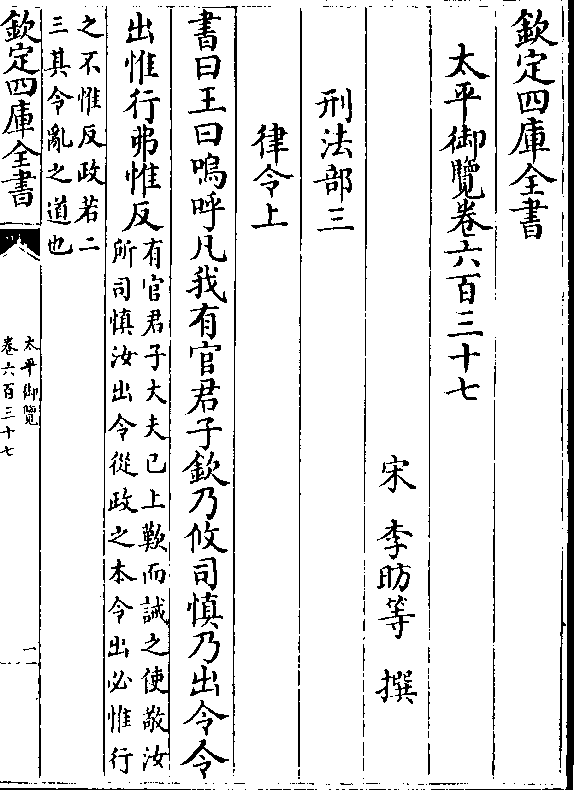 欽定四庫全書
太平御覽卷六百三十七
宋　李昉等　撰
刑法部三
律令上
書曰王曰嗚呼凡我有官君子欽乃攸司慎乃出令令
出惟行弗惟反
有官君子大夫已上歎而誡之使敬汝
所司慎汝出令從政之本令出必惟行
之不惟反政若二
三其令亂之道也
欽定四庫全書
太平御覽
卷六百三十七
一